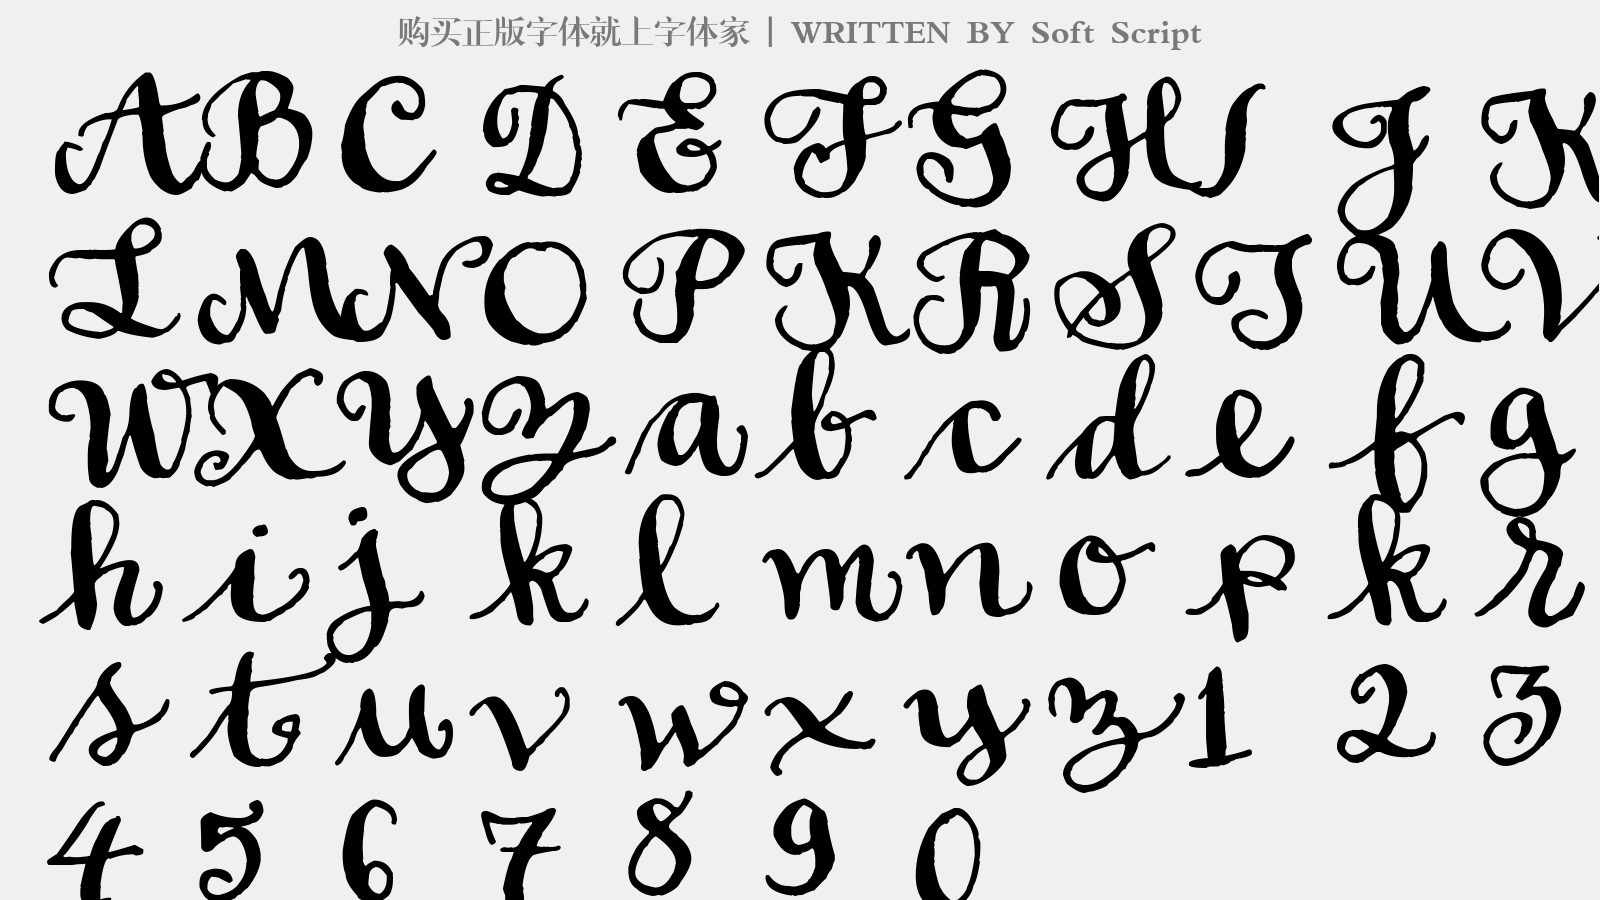 购买正版字体就上字体家 | WRITTEN BY Soft Script
A B C D E F G H I J K
L M N O P K R S T U V
W X Y Z a b c d e f g
h i j k l m n o p k r
s t u v w x y z 1 2 3
4 5 6 7 8 9 0